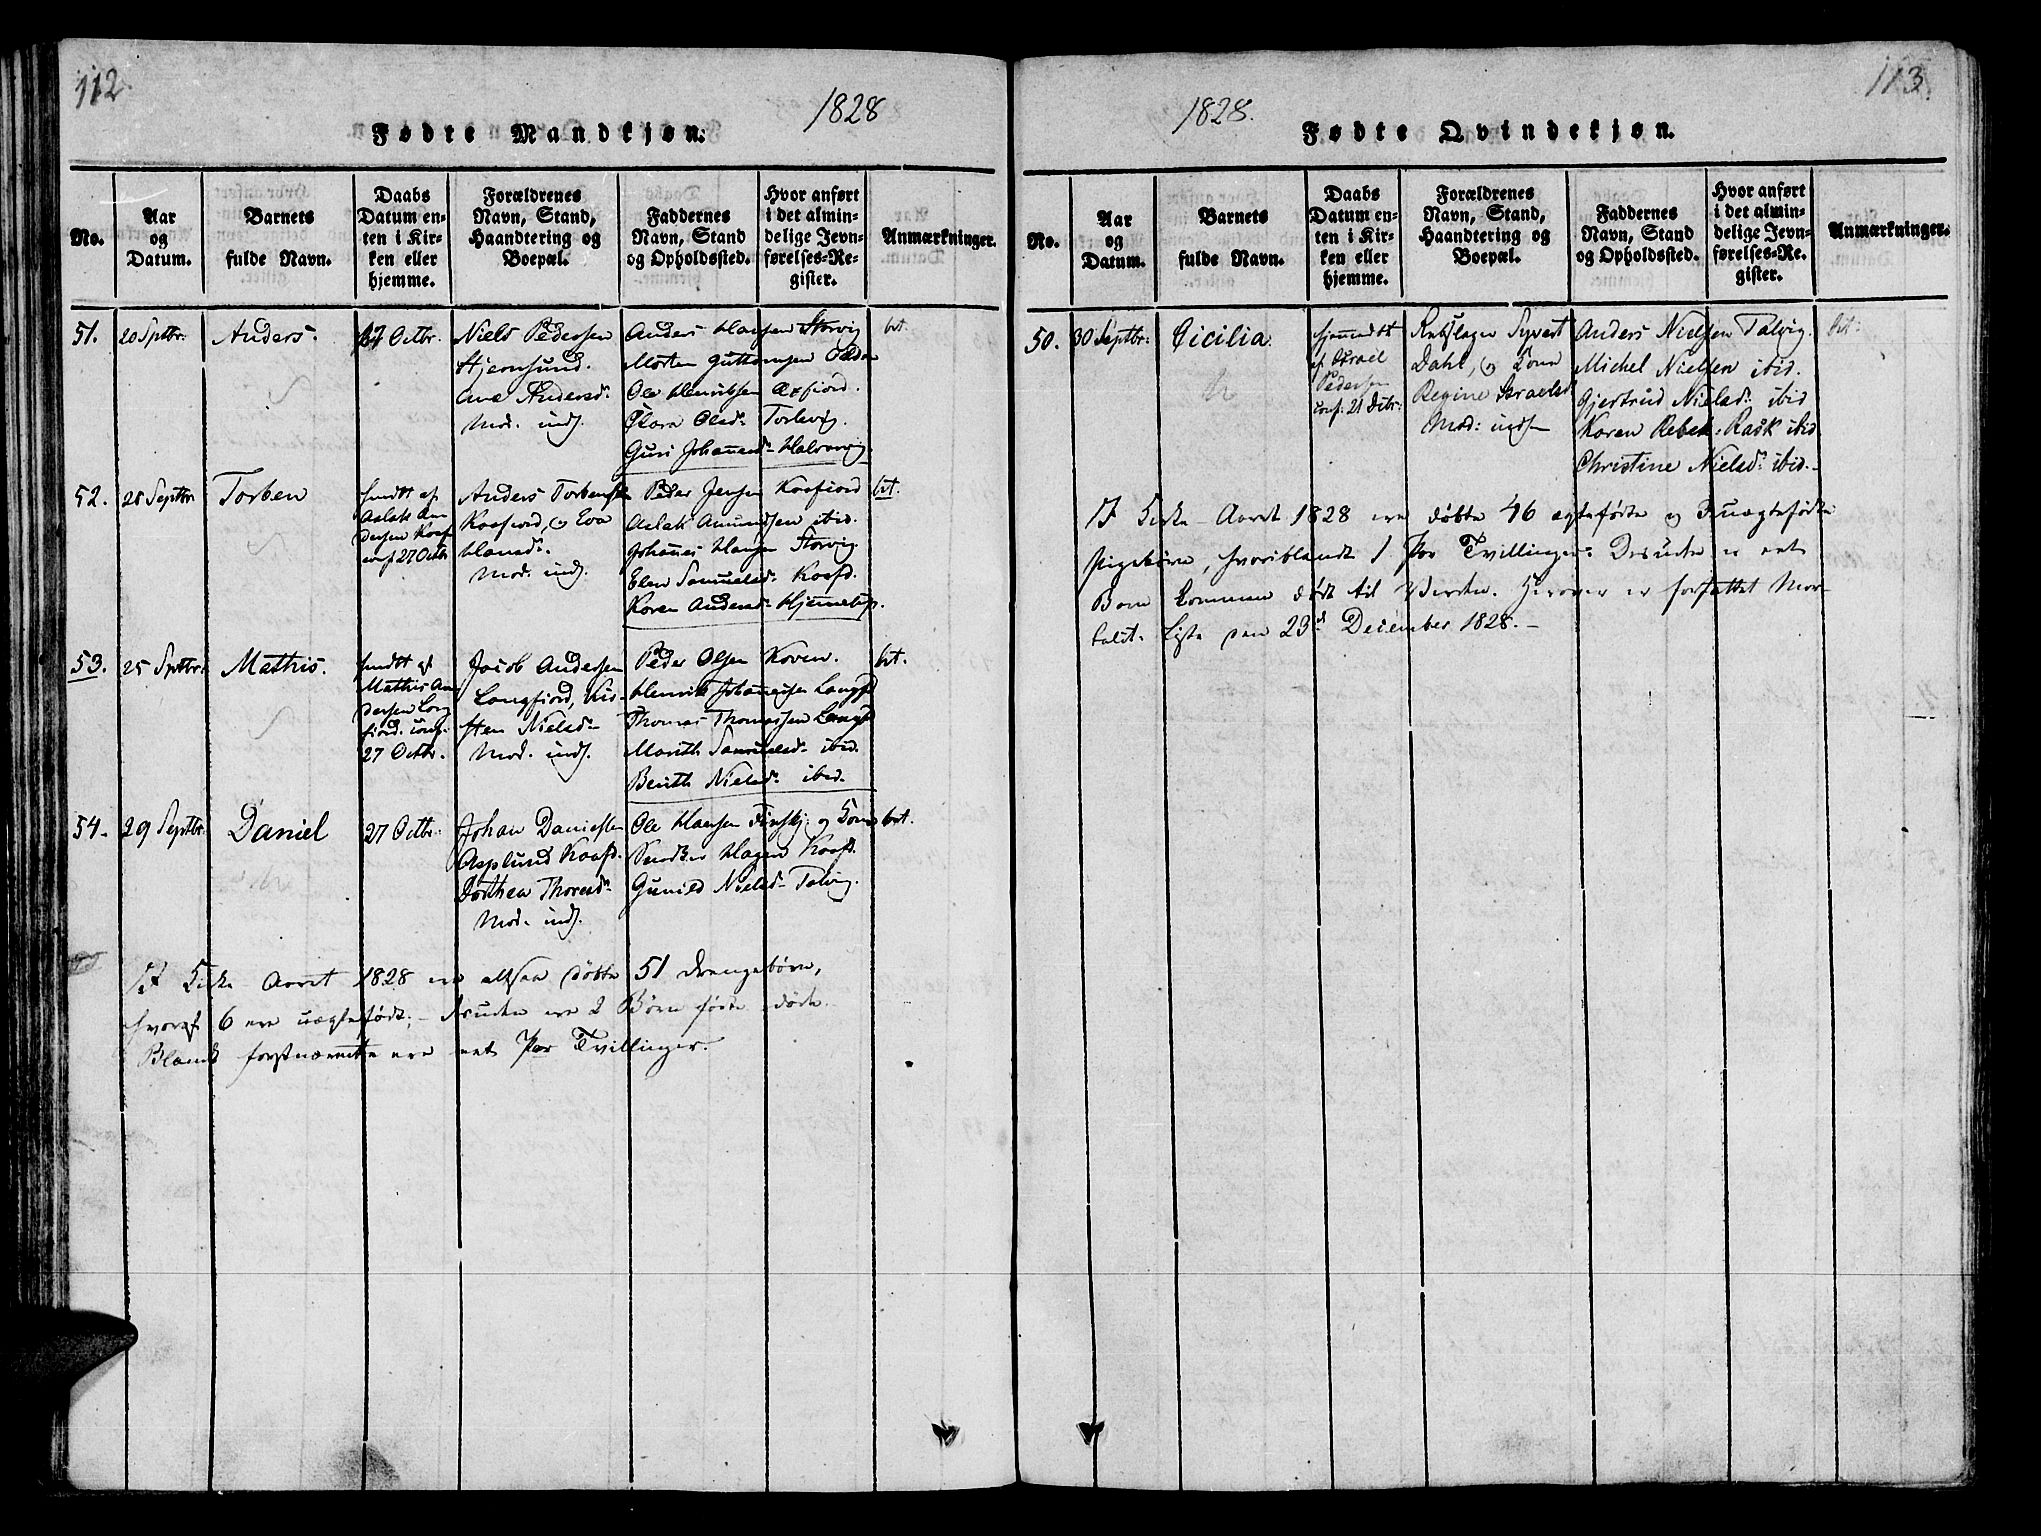 112.
1828
Fødte Mandkjøn.
No.
Aar
og
Datum.
Barnets
fulde Navn.
Daabs
Datum en-
ten i Kir-
ken eller
hjemme.
Forældrenes
Navn, Stand,
Haandtering og
Boepæl.
Faddernes
Navn, Stand
og Opholdssted.
Hvor anført
i det almin-
delige Jevn-
førelses-Re-
gister.
Anmærkninger.
51.
20 Septbr:
Anders.
Octbr.
Niels Pedersen
Hjernsund.
Ane Andersd.
Mod. inds.
Anders Hansen Storvig
Morten Guttormsen
Ole Henriksen Oxfiord.
Olsd. Torlevig.
Guri Johannesd.
bet.
52.
28 Septbr
Torben
hiemdt af
Aslak An
dersen Koaf
conf 27 Octbr
Anders Torbensen
Koafiord, og Eva
Hansd.
Mod. inds.
Peder Jensen Koafiord
Aslak Amundsen ibid.
Johannes Hansen Storvig
Elen Samuelsd. Koafd.
Karen Andersd.
bet.
53.
25 Septbr.
Mathis.
hiemdt af
Mathis An
dersen Lang
fiord. conf.
27 Octbr.
Jacob Andersen
Langfiord, Kir-
sten Nielsd.
Mod. inds.
Peder Olsen Koven.
Henrik Johannesen Langfd
Thomas Thomassen Langfd
Marith Samuelsd. ibid.
Berith Nielsd. ibid.
bet.
54.
29 Septbr.
Daniel
27 Octbr.
Johan Danielsen
Asplund Koafd.
Dorthea Thoresd.
Mod. inds.
Ole Hansen og Kone
Snedker Hagen Koafd.
Gunild Nielsd. Talvig.
bet.
I Kirke Aaret 1828 ere altsaa døbte 51 Drengebørn,
hvoraf 6 ere uægtefødte; - desuden ere 2 Børn fødte døde.
Blandt førstnævnte ere et Par Tvillinger.
113.
1828.
Fødte Qvindekjøn.
No.
Aar
og
Datum.
Barnets
fulde Navn.
Daabs
Datum en-
ten i Kir-
ken eller
hjemme.
Forældrenes
Navn, Stand,
Haandtering og
Boepæl.
Faddernes
Navn, Stand
og Opholdssted.
Hvor anført
i det almin-
delige Jevn-
førelses-Re-
gister.
Anmærkninger.
50.
30 Septbr:
Cicilia.
hjemmedt
af Israel
Pedersen
conf: 21 Decbr:
Rebslager Syvert
Dahl, og Kone
Regine Israelsd
Mod: inds
Anders Nielsen Talvig.
Michel Nielsen ibid.
Gjertrud Nielsd. ibid
Karen Rebek. Rask ibid
Christine Nielsd. ibid.
bet:
I Kirke-Aaret 1828 ere døbte 46 ægtefødte og uægtefødte
Pigebørn, hvoriblandt 1 Par Tvillinger. Desuden er et
Barn kommen dødt til Verden. Herover er forfattet Mor-
talit. Liste den 23d December 1828.